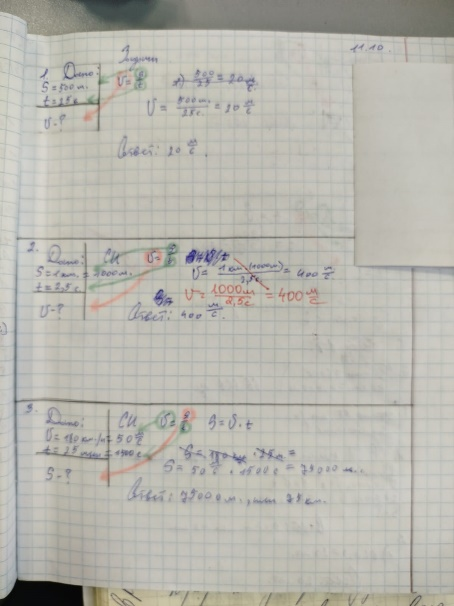 Задачи
11.10.
1. Дано:
S = 500 м.
t = 25 с
V - ?
V = S/t
1) 500/25 = 20 м/с
V = 500 м./25 с. = 20 м/с
Ответ: 20 м/с.
2. Дано:
S = 1 км. = 1000 м.
t = 2,5 с
V - ?
СИ
V = S/t
V = 1 км (1000м)/2,5с = 400 м/с
V = 1000м/2,5с = 400 м/с
Ответ: 400 м/с.
3. Дано:
V = 180 км/ч = 50 м/с
t = 25 мин = 1500 с
S - ?
СИ
V = S/t
S = V · t
S = 50 м/с · 1500 с = 75000 м.
Ответ: 75000 м., или 75 км.